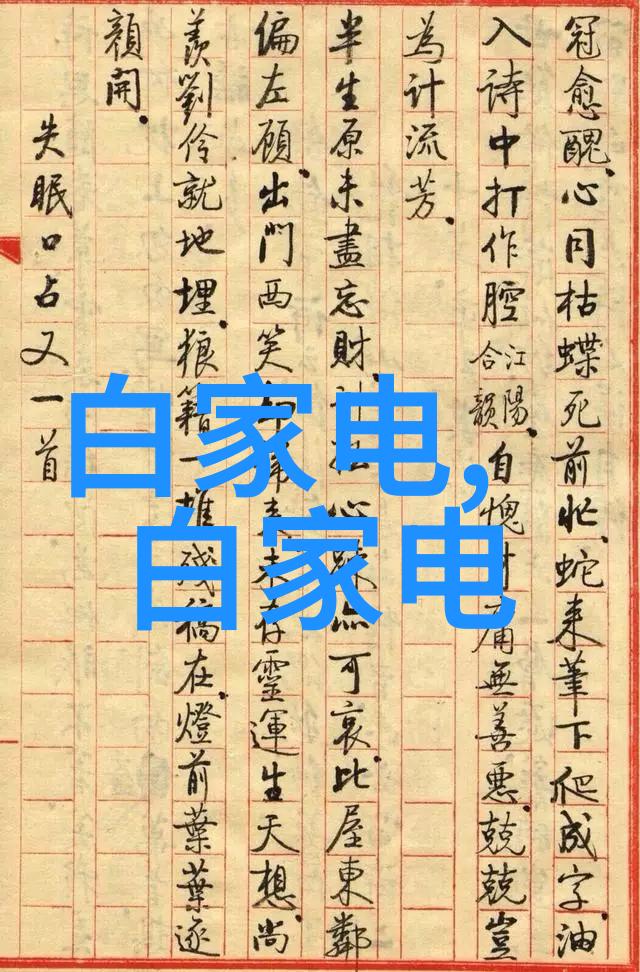 冠愈醜。心同枯蝶死前忙、蛇来筆下爬成字。油
入詩中打作腔合江陽韻。自愧庸無善惡、兢兢豈
為計流芳。
半生原未盡忘財、計拙心可哀。比屋東鄰
偏左顧、出門西笑未存靈運生天想、尚
羨劉伶就地埋。狼籍一堆殘稿在、燈前葉葉逐
顏開。
失眠口占又一首
白家电,
白家电